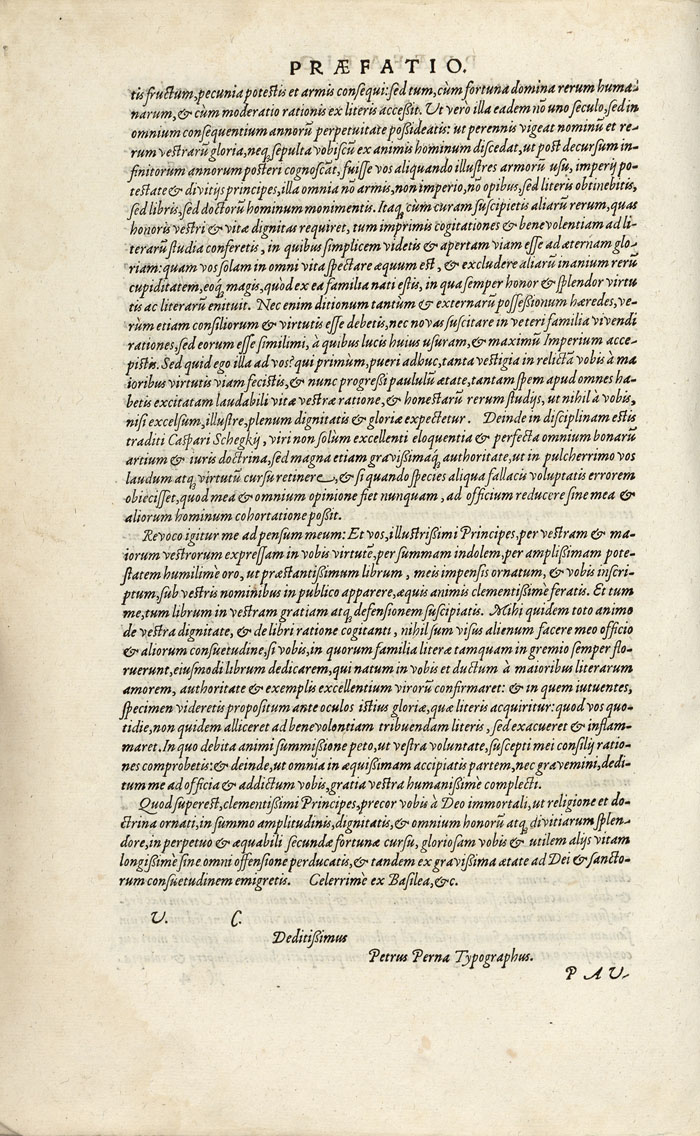 PRÆFATIO.
tis fructum, pecunia potestis et armis consequi: sed tum, cùm fortuna domina rerum huma-
narum, & cùm moderatio rationis ex literis accessit. Ut verò illa eadem nō uno seculo, sed in
omnium consequentium annorū perpetuitate possideatis: ut perennis vigeat nominū et re-
rum vestrarū gloria, neq; sepulta vobiscū ex animis hominum discedat, ut post decursum in-
finitorum annorum posteri cognoscāt, fuisse vos aliquando illustres armorū usu, imperij po-
testate & divitijs principes, illa omnia nō armis, non imperio, nō opibus, sed literis obtinebitis,
sed libris, sed doctorū hominum monimentis. Itaq; cùm curam suscipietis aliarū rerum, quas
honoris vestri & vitæ dignitas requiret, tum imprimis cogitationes & benevolentiam ad li-
terarū studia conferetis, in quibus simplicem videtis & apertam viam esse ad æternam glo-
riam: quam vos solam in omni vita spectare æquum est, & excludere aliarū inanium rerū
cupiditatem, eoq; magis, quòd ex ea familia nati estis, in qua semper honor & splendor virtu
tis ac literarū enituit. Nec enim ditionum tantùm & externarū possessionum hæredes, ve-
rùm etiam consiliorum & virtutis esse debetis, nec novas suscitare in veteri familia vivendi
rationes, sed eorum esse similimi, à quibus lucis huius usuram, & maximū Imperium acce-
pistis. Sed quid ego illa ad vos? qui primum, pueri adhuc, tanta vestigia in relictā vobis à ma
ioribus virtutis viam fecistis, & nunc progressi paululū ætate, tantam spem apud omnes ha-
betis excitatam laudabili vitæ vestræ ratione, & honestarū rerum studijs, ut nihil à vobis,
nisi excelsum, illustre, plenum dignitatis & gloriæ expectetur. Deinde in disciplinam estis
traditi Caspari Schegkij, viri non solùm excellenti eloquentia & perfecta omnium bonarū
artium & iuris doctrina, sed magna etiam gravissimaq; authoritate, ut in pulcherrimo vos
laudum atq; virtutū cursu retinere, & si quando species aliqua fallacis voluptatis errorem
obiecisset, quod mea & omnium opinione fiet nunquam, ad officium reducere sine mea &
aliorum hominum cohortatione possit.
Revoco igitur me ad pensum meum: Et vos, illustrissimi Principes, per vestram & ma-
iorum vestrorum expressam in vobis virtutē, per summam indolem, per amplissimam pote-
statem humilimè oro, ut præstantissimum librum, meis impensis ornatum, & vobis inscri-
ptum, sub vestris nominibus in publico apparere, æquis animis clementissimè feratis. Et tum
me, tum librum in vestram gratiam atq; defensionem suscipiatis. Mihi quidem toto animo
de vestra dignitate, & de libri ratione cogitanti, nihil sum visus alienum facere meo officio
& aliorum consuetudine, si vobis, in quorum familia literæ tamquam in gremio semper flo-
ruerunt, eiusmodi librum dedicarem, qui natum in vobis et ductum à maioribus literarum
amorem, authoritate & exemplis excellentium virorū confirmaret: & in quem iutuentes,
specimen videretis propositum ante oculos istius gloriæ, quæ literis acquiritur: quod vos quo-
tidie, non quidem alliceret ad benevolentiam tribuendam literis, sed exacueret & inflam-
maret. In quo debita animi summissione peto, ut vestra voluntate, suscepti mei consilij ratio-
nes comprobetis: & deinde, ut omnia in æquissimam accipiatis partem, nec gravemini, dedi-
tum me ad officia & addictum vobis, gratia vestra humanissimè complecti.
Quod superest, clementissimi Principes, precor vobis à Deo immortali, ut religione et do-
ctrina ornati, in summo amplitudinis, dignitatis, & omnium honorū atq; divitiarum splen-
dore, in perpetuo & æquabili secundæ fortunæ cursu, gloriosam vobis & utilem alijs vitam
longissimè sine omni offensione perducatis, & tandem ex gravissima ætate ad Dei & sancto-
rum consuetudinem emigretis. Celerrimè ex Basilea, &c.
U. C.
Deditissimus
Petrus Perna Typographus.
PAU-